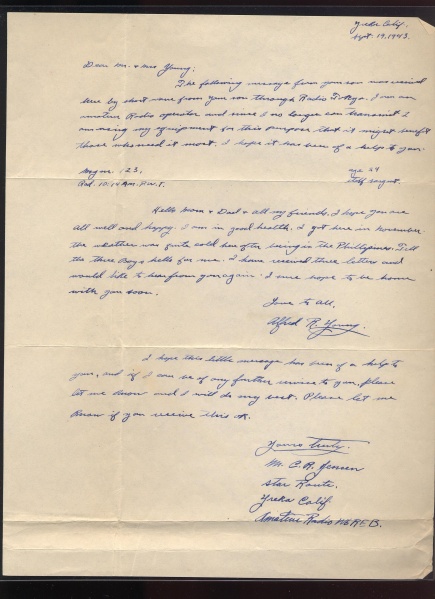 Yreka Calif.
Sept. 19, 1943.
Dear Mr. & Mrs Young;
The following message from your son was received
here by short wave from your son through Radio Tokyo. I am an
amateur Radio operator and since I no longer can transmit I
am using my equipment for this purpose that it might benefit
those who need it most. I hope it has been of a help to you.
Msg no. 123. age 24
Rec. 10:14 P.M. staff sergt.
Hello Mom & Dad & all my friends. I hope you are
all well and happy. I am in good health. I got here in November
the weather was quite cold here after being in the Phillipines. Tell
the three Boys hello for me. I have received three letters and
would like to hear from you again. I sure hope to be home
with you soon.
Love to all,
Alfred R. Young.
I hope this little message has been of a help to
you, and if I can be of any further service to you, please
let me know and I will do my best. Please let me
know if you receive this ok.
Yours truly.
Mr. C. R. Jensen
Star Route.
Yreka Calif.
Amateur Radio W6REB.